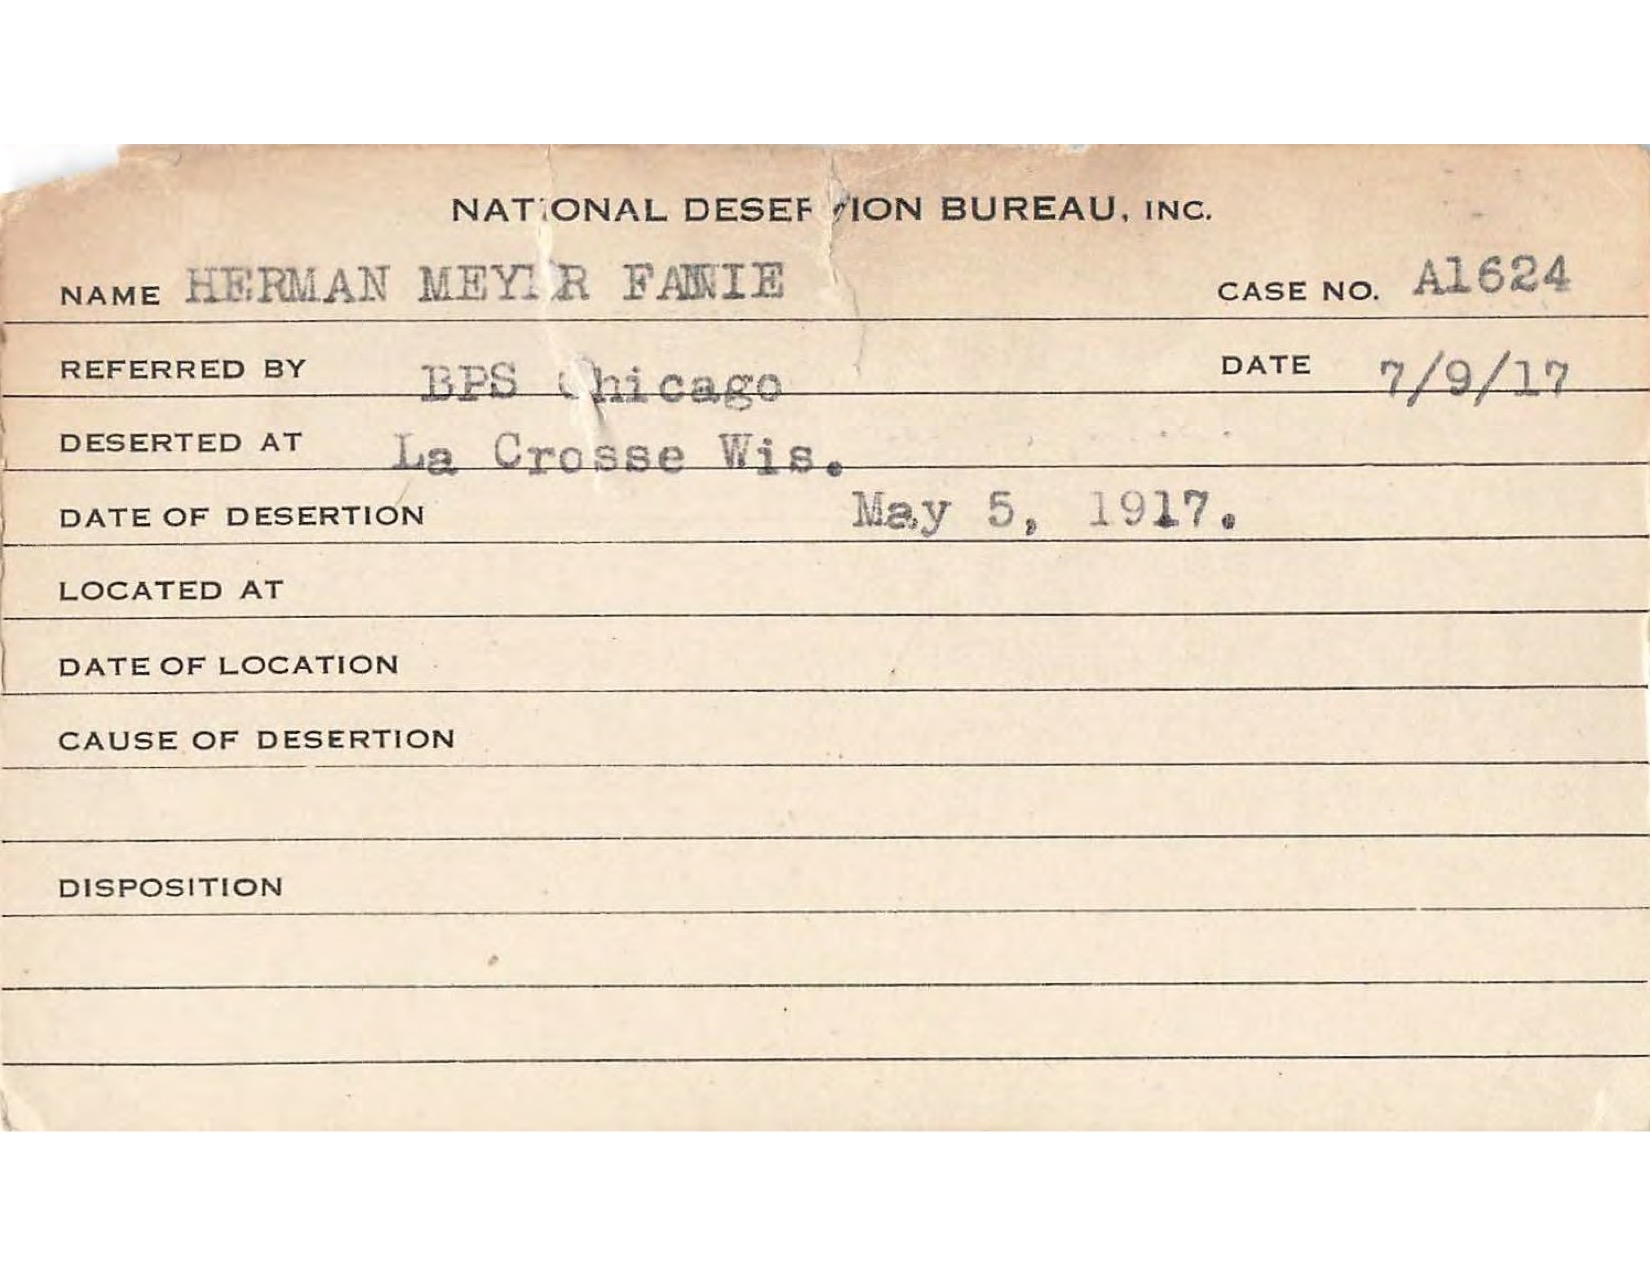 NATIONAL DESERTION BUREAU, INC.
NAME HERMAN MEYER FANNIE CASE NO. A1624
REFERRED BY BPS Chicago DATE 7/9/17
DESERTED AT La Crosse Wis.
DATE OF DESERTION May 5, 1917.
LOCATED AT
DATE OF LOCATION
CAUSE OF DESERTION
DISPOSITION